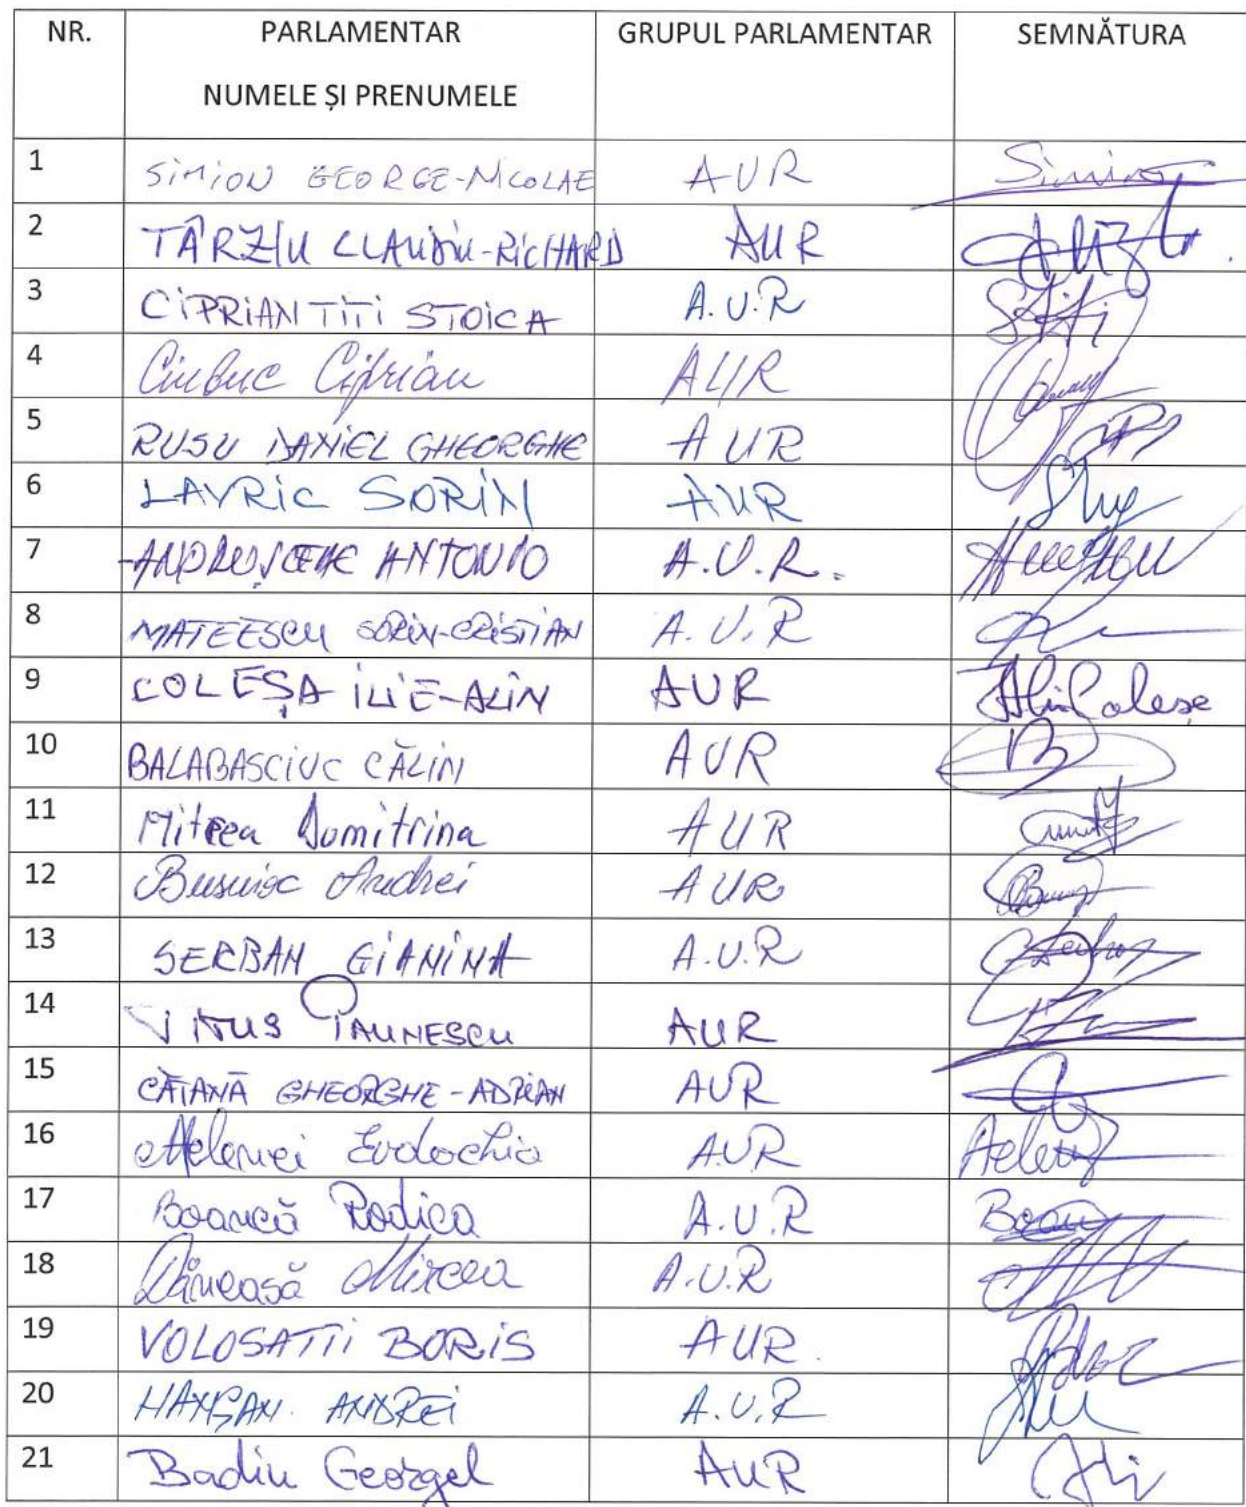 NR. PARLAMENTAR GRUPUL PARLAMENTAR SEMNĂTURA
NUMELE ȘI PRENUMELE
1 SIMION GEORGE-NICOLAE AUR Simion
2 TÂRZIU CLAUDIU-RICHARD AUR
3 CIPRIAN TITI STOICA A.U.R
4 Ciubuc Ciprian AUR
5 RUSU DANIEL GHEORGHE AUR
6 LAVRIC SORIN AUR
7 ANDRUȘCEAC ANTONIO A.U.R.
8 MATEESCU SORIN-CRISTIAN A.U.R
9 COLEȘA ILIE-ALIN AUR Alin Coleșa
10 BALABASCIUC CĂLIN AUR
11 Mitrea Dumitrina AUR
12 Busuioc Andrei AUR
13 SERBAN GIANINA A.U.R
14 TITUS PAUNESCU AUR
15 CĂTANĂ GHEORGHE-ADRIAN AUR
16 Aelenei Evdochia AUR
17 Boancă Rodica A.U.R
18 Dăneasă Mircea A.U.R
19 VOLOSATII BORIS AUR
20 HANGAN ANDREI A.U.R
21 Badiu Georgel AUR